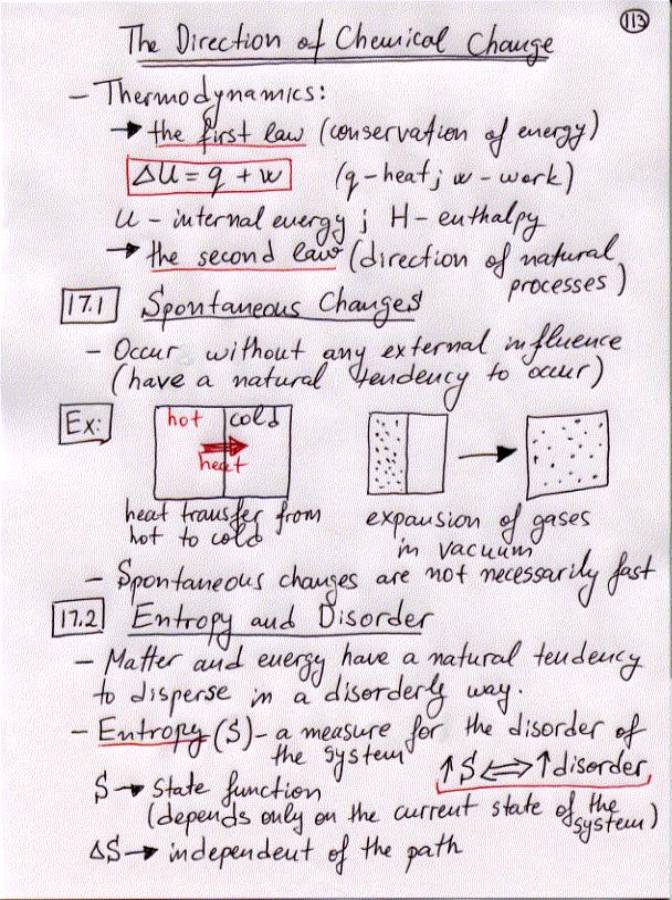 113
The Direction of Chemical Change
- Thermodynamics:
→ the first law (conservation of energy)
ΔU = q + w (q - heat; w - work)
U - internal energy; H - enthalpy
→ the second law (direction of natural
processes)
17.1 Spontaneous Changes
- Occur without any external influence
(have a natural tendency to occur)
Ex: hot cold
heat
heat transfer from
hot to cold
expansion of gases
in vacuum
- Spontaneous changes are not necessarily fast
17.2 Entropy and Disorder
- Matter and energy have a natural tendency
to disperse in a disorderly way.
- Entropy (S) - a measure for the disorder of
the system
↑S ⟺ ↑disorder
S → state function
(depends only on the current state of the
system)
ΔS → independent of the path